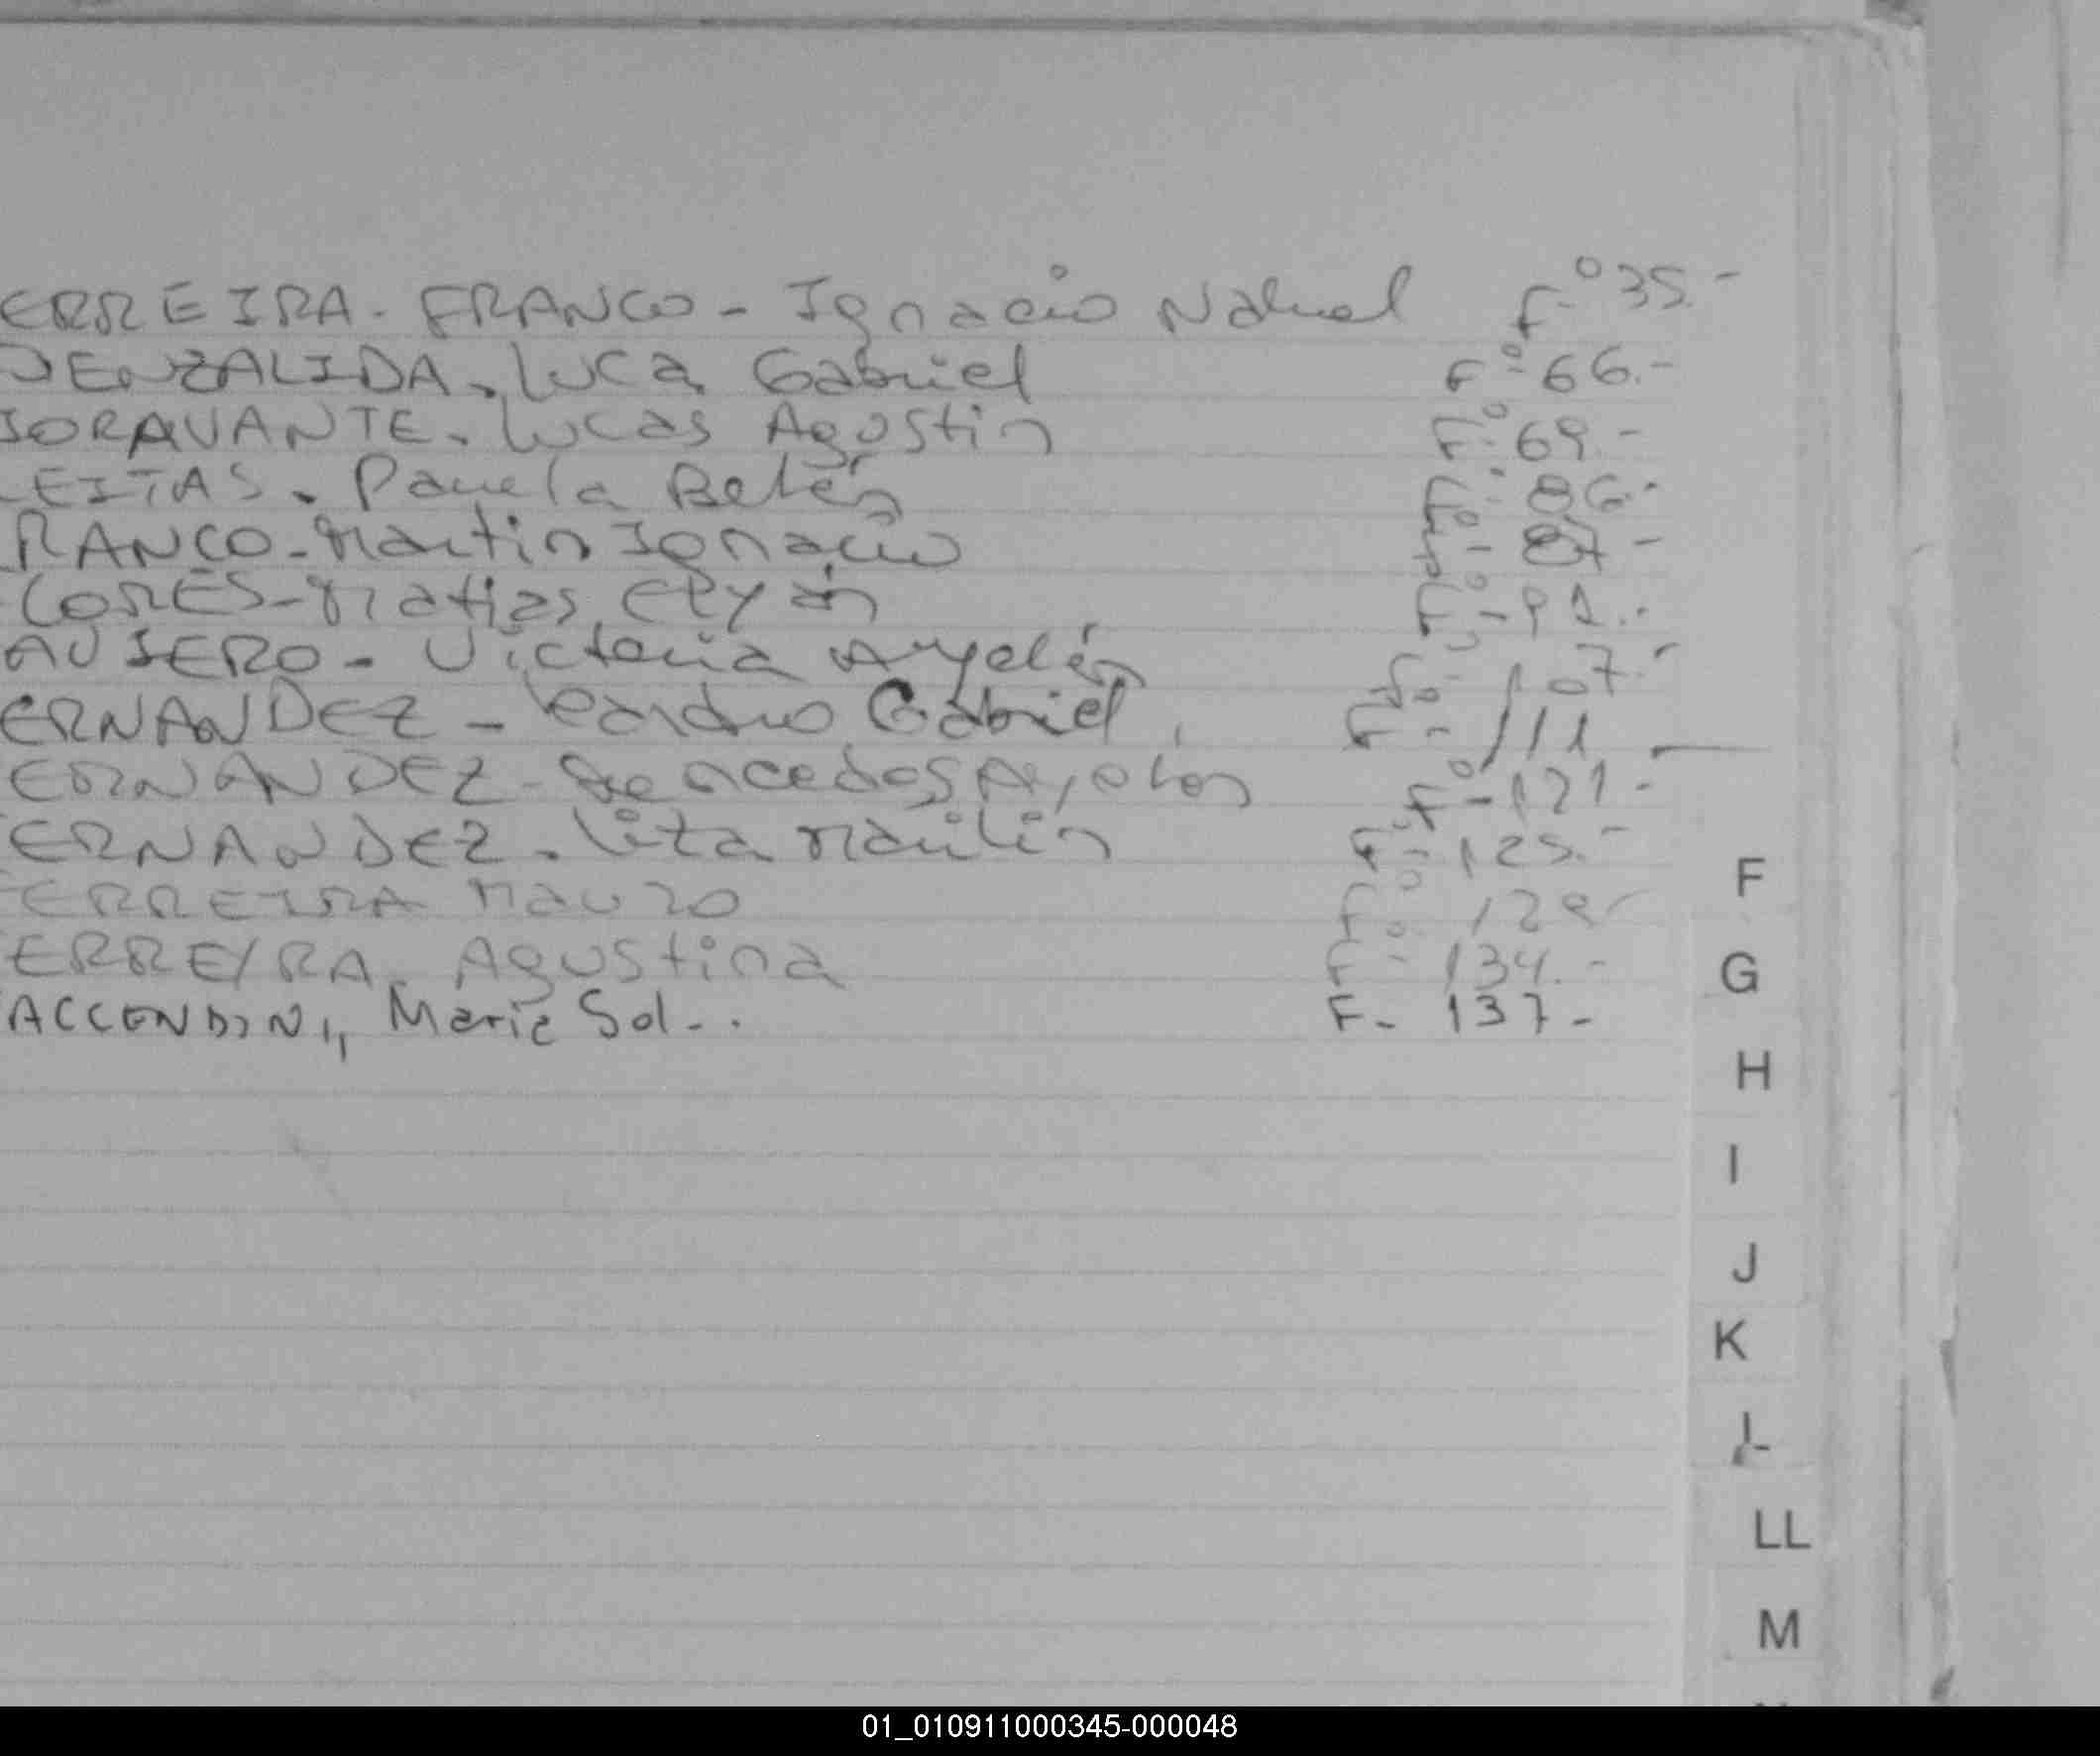 ERREIRA - FRANCO - Ignacio Nahuel F-º 35.-
ENZALIDA. Luca Gabriel Fº- 66.-
IORAVANTE. Lucas Agostin Fº- 69.-
EITAS. Pamela Belén Fº- 86.-
RANCO - Martin Ignacio Fº- 87 -
LORES - Matias Fº- 91.-
AVIERO - Victoria Ayelén Fº- 107.-
ERNANDEZ - Gabriel Fº- 111
ERNANDEZ - Fº- 121 -
ERNANDEZ. Marilin Fº- 125.-
ERREIRA Mauro Fº-
ERREYRA. Agustina Fº- 134.-
ACCENDINI, Maria Sol-. F- 137-
F
G
H
I
J
K
L
LL
M
01_010911000345-000048